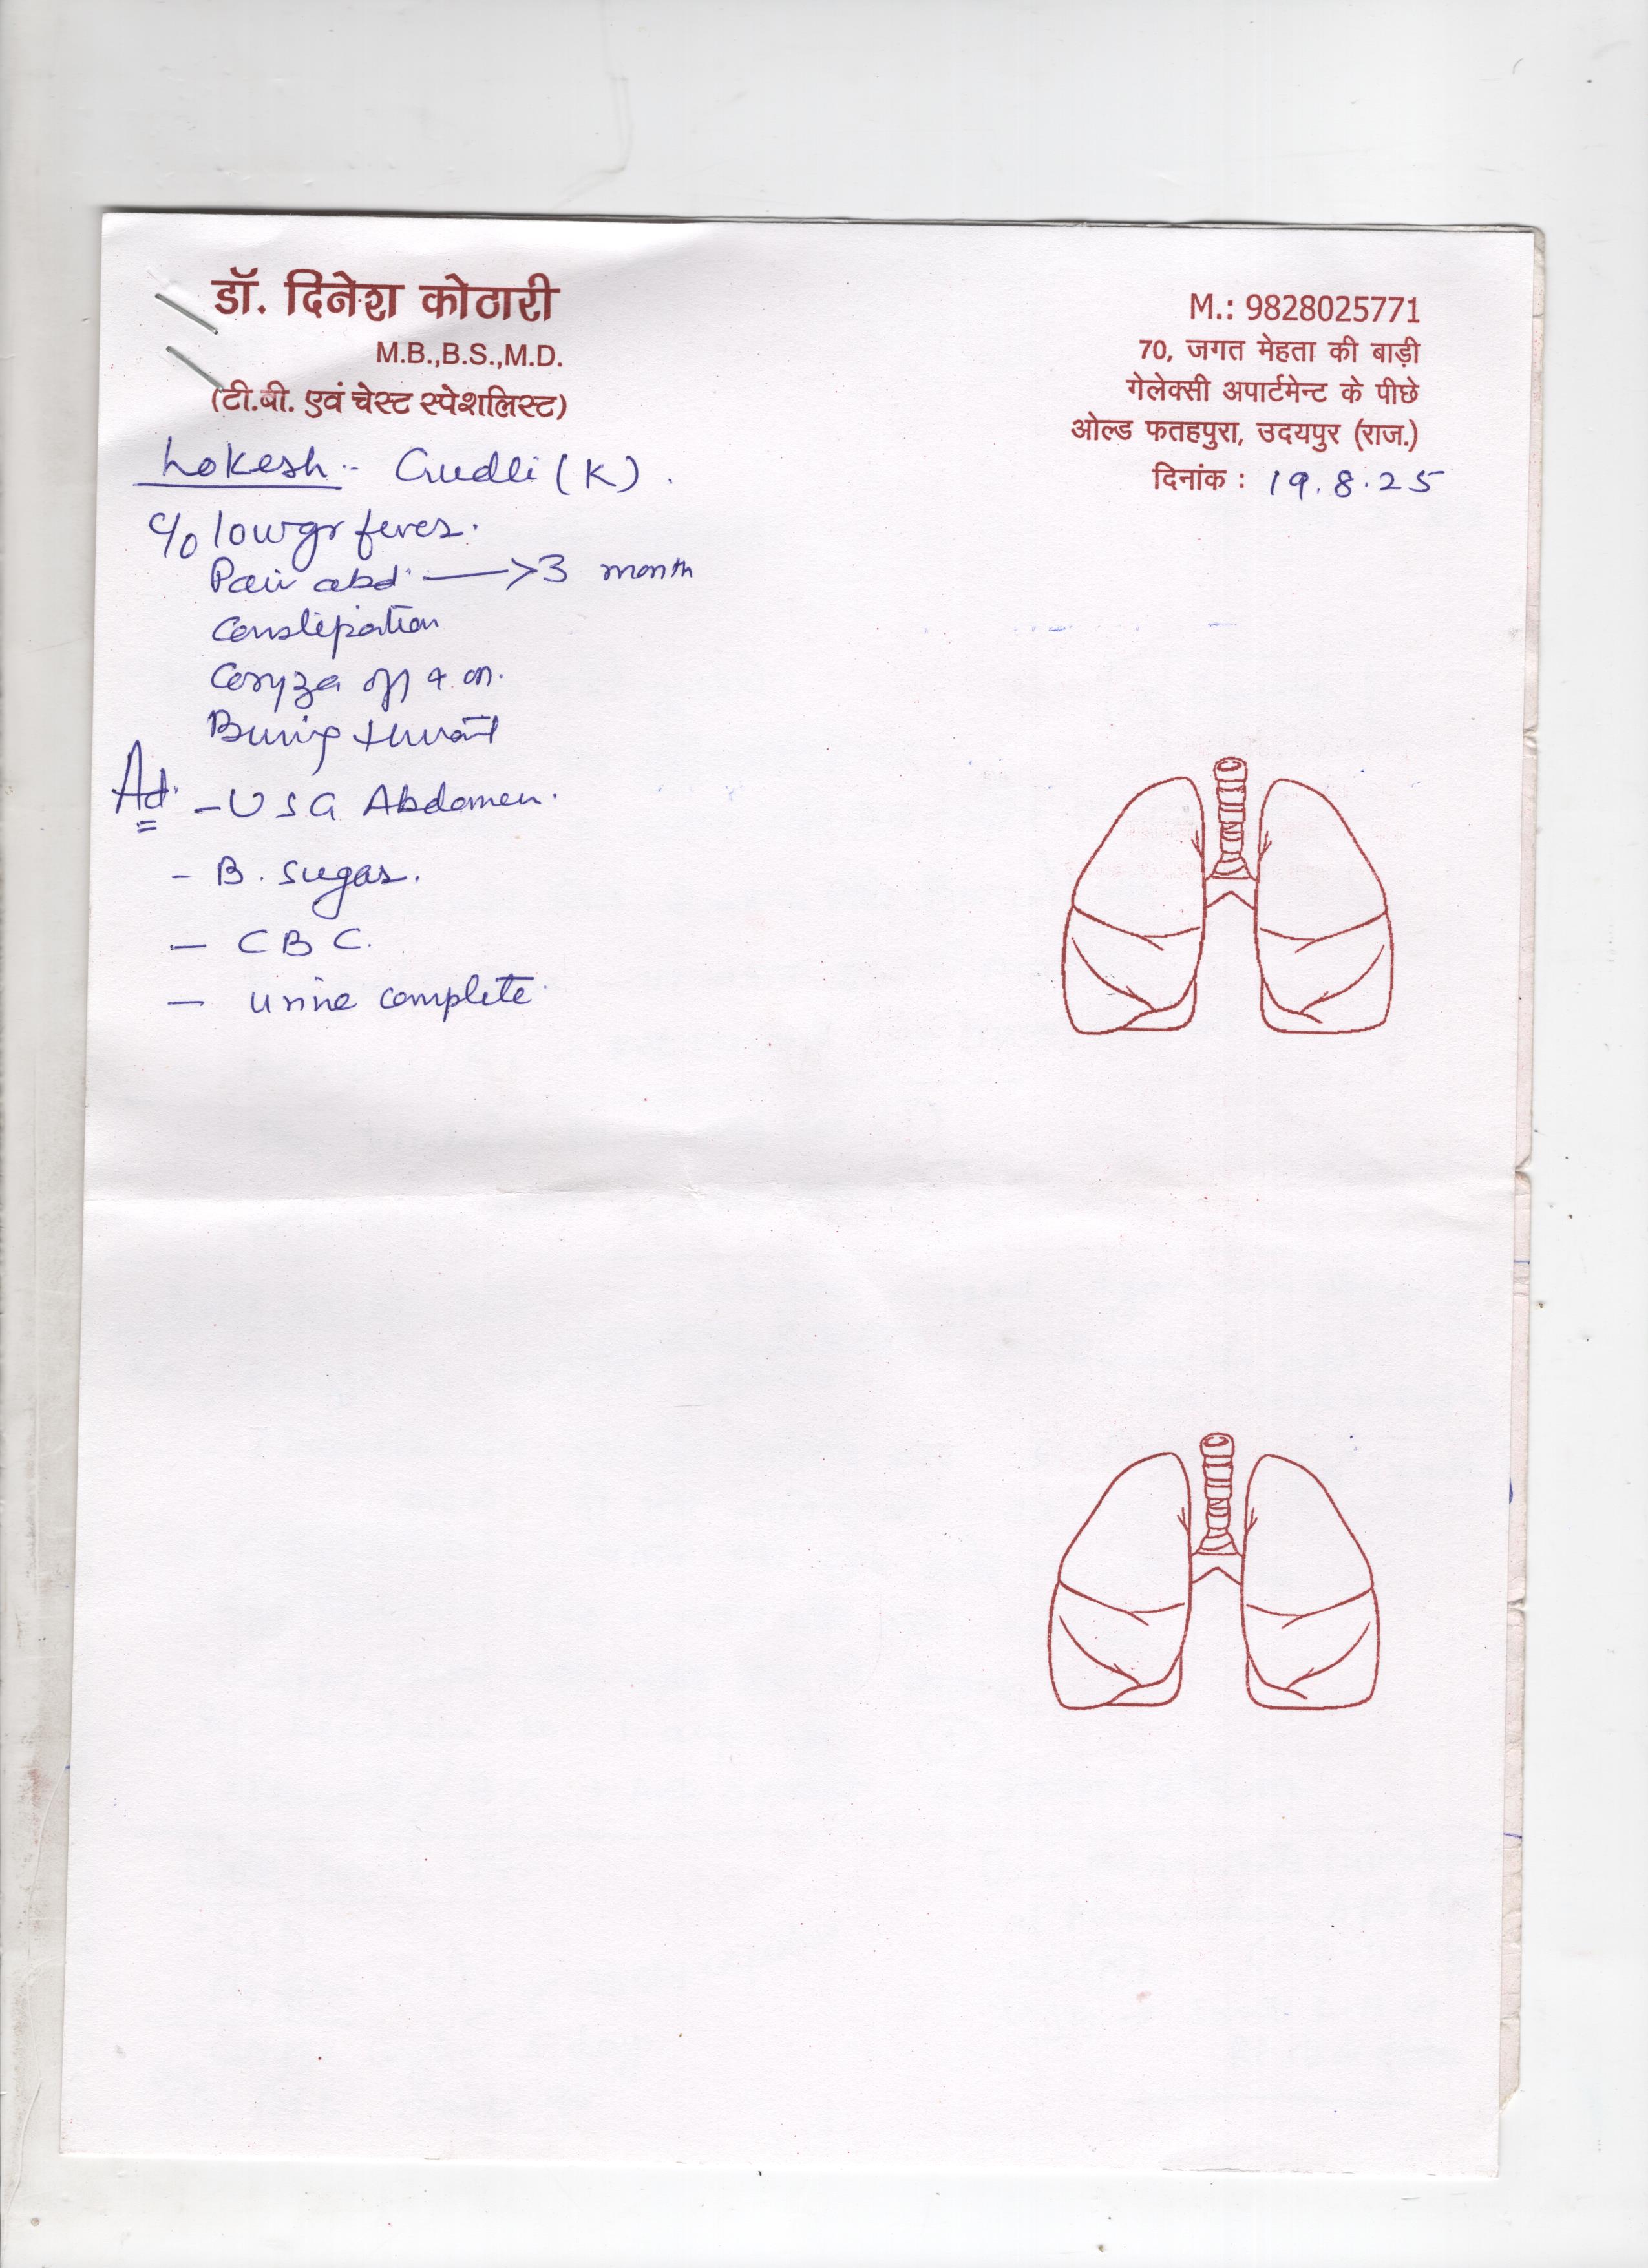 डॉ. दिनेश कोठारी
M.B.,B.S.,M.D.
(टी.बी. एवं चेस्ट स्पेशलिस्ट)
M.: 9828025771
70, जगत मेहता की बाड़ी
गेलेक्सी अपार्टमेन्ट के पीछे
ओल्ड फतहपुरा, उदयपुर (राज.)
दिनांक : 19.8.25
Lokesh - Gudli (K).
c/o low gr fever.
Pain abd. → 3 month
Constipation
Coryza off & on.
Burning throat
Ad. - USG Abdomen.
- B. Sugar.
- CBC.
- Urine complete